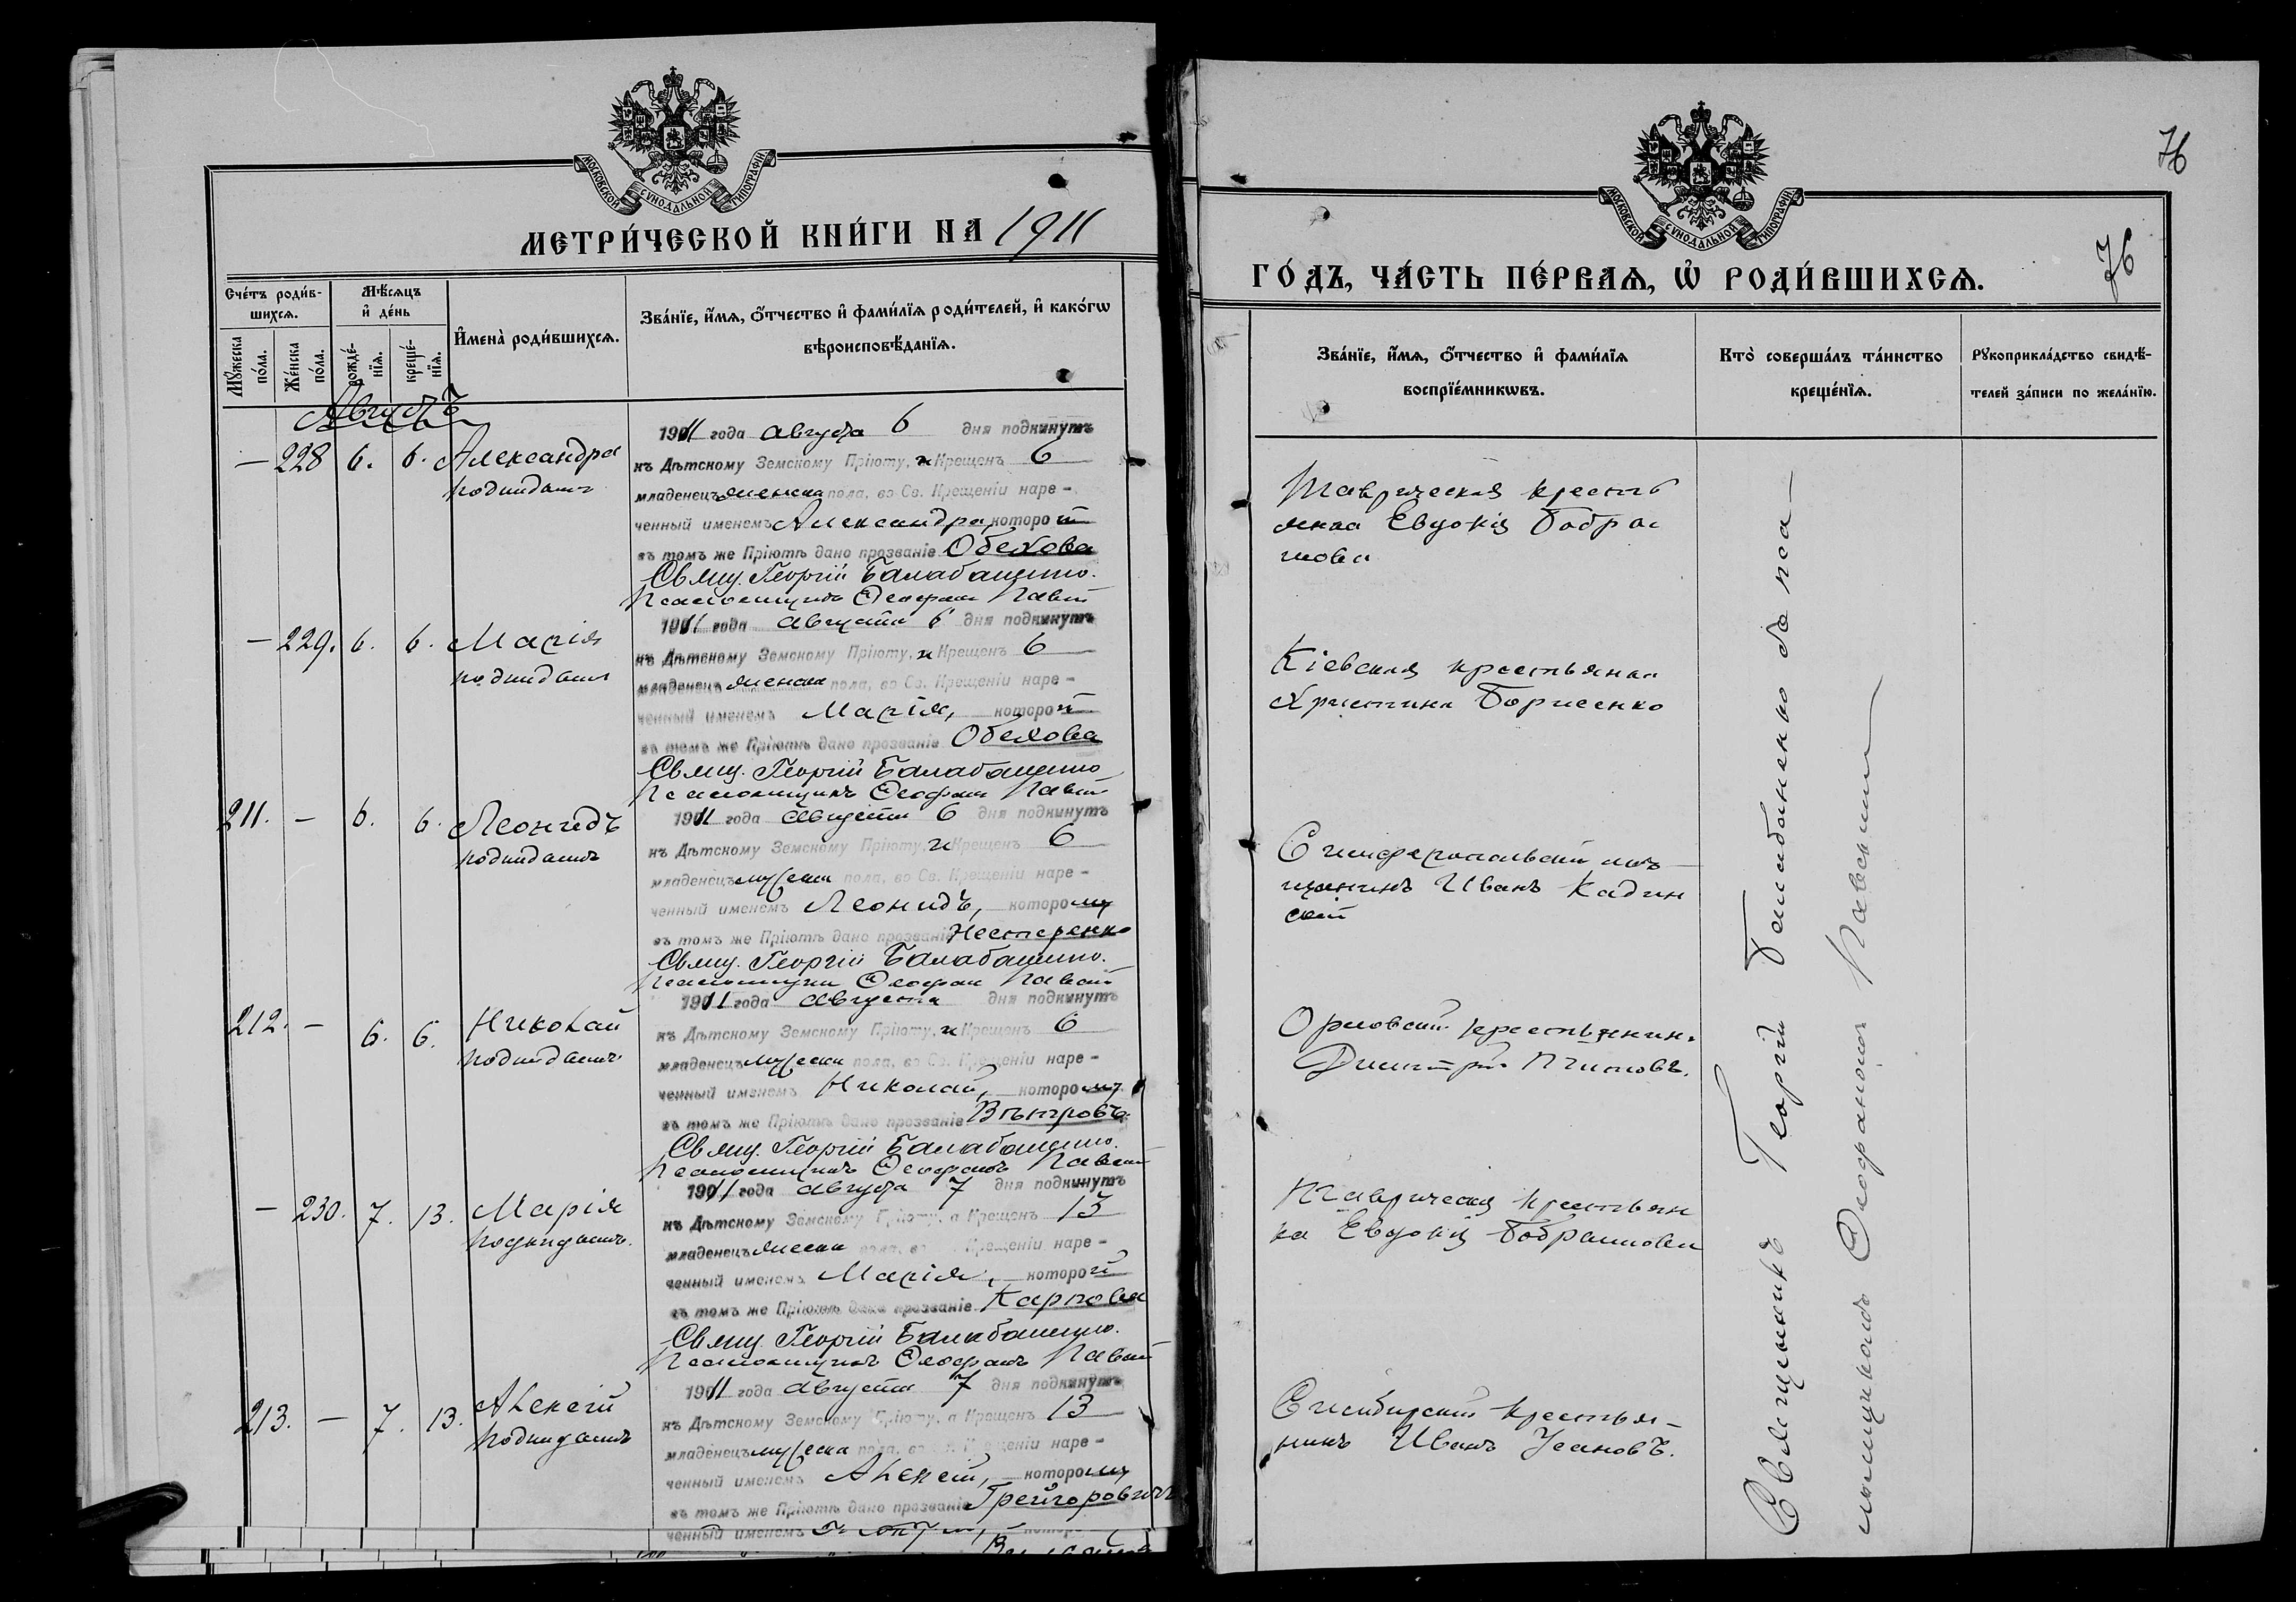 МОСКОВСКОЙ СѴНОДАЛЬНОЙ ТИПОГРАФІИ
МЕТРИ́ЧЕСКОЙ КНИ́ГИ НА 1911
Сче́тъ роди́в-
шихсѧ.
Мꙋ́жеска
по́ла.
Же́нска
по́ла.
Мѣ́сѧцъ
и҆ де́нь
рожде́-
нїѧ.
креще́-
нїѧ.
И҆мена̀ роди́вшихсѧ.
Зва́нїе, и҆́мѧ, ѻ҆́тчество и҆ фами́лїѧ роди́телей, и҆ како́гѡ
вѣроисповѣ́данїѧ.
Августъ
— 228 6. 6. Александра
подкидышъ
1911 года августа 6 дня подкинутъ
къ Дѣтскому Земскому Пріюту, и Крещенъ 6
младенецъ женска пола, во Св. Крещеніи наре-
ченный именемъ Александра, которой
въ томъ же Пріютѣ дано прозваніе Обехова
Свящ. Георгій Балабаненко.
Псаломщикъ Ѳеофанъ
— 229. 6. 6. Марія
подкидышъ
1911 года августа 6 дня подкинутъ
къ Дѣтскому Земскому Пріюту, и Крещенъ 6
младенецъ женска пола, во Св. Крещеніи наре-
ченный именемъ Марія, которой
въ томъ же Пріютѣ дано прозваніе Обехова
Свящ. Георгій Балабаненко
Псаломщикъ Ѳеофанъ
211. — 6. 6. Леонидъ
подкидышъ
1911 года августа 6 дня подкинутъ
къ Дѣтскому Земскому Пріюту, и Крещенъ 6
младенецъ мужеска пола, во Св. Крещеніи наре-
ченный именемъ Леонидъ, которому
въ томъ же Пріютѣ дано прозваніе Нестеренко
Свящ. Георгій Балабаненко.
Псаломщикъ Ѳеофанъ
212. — 6. 6. Николай
подкидышъ
1911 года августа дня подкинутъ
къ Дѣтскому Земскому Пріюту, и Крещенъ 6
младенецъ мужеска пола, во Св. Крещеніи наре-
ченный именемъ Николай, которому
въ томъ же Пріютѣ дано прозваніе Вѣтровъ
Свящ. Георгій Балабаненко.
Псаломщикъ Ѳеофанъ
— 230. 7. 13. Марія
подкидышъ.
1911 года августа 7 дня подкинутъ
къ Дѣтскому Земскому Пріюту, а Крещенъ 13
младенецъ женска пола, во Крещеніи наре-
ченный именемъ Марія, которой
въ томъ же Пріютѣ дано прозваніе Карпова
Свящ. Георгій Балабаненко.
Псаломщикъ Ѳеофанъ
213. — 7. 13. Алексій
подкидышъ
1911 года августа 7 дня подкинутъ
къ Дѣтскому Земскому Пріюту, а Крещенъ 13
младенецъ мужеска пола, во Св. Крещеніи наре-
ченный именемъ Алексій, которому
въ томъ же Пріютѣ дано прозваніе Грейгоровичъ
ченный именемъ
76
МОСКОВСКОЙ СѴНОДАЛЬНОЙ ТИПОГРАФІИ
76
ГО́ДЪ, ЧА́СТЬ ПЕ́РВАѦ, Ѡ҆ РОДИ́ВШИХСѦ.
Зва́нїе, и҆́мѧ, ѻ҆́тчество и҆ фами́лїѧ
воспрїе́мникѡвъ.
Кто̀ соверша́лъ та́инство
креще́нїѧ.
Рꙋкоприкла́дство свидѣ́-
телей за́писи по жела́нїю.
Таврическая кресть
янка Евдокія Бобра
шова
Кіевская крестьянка
Христина Борисенко
Симферопольскій мѣ
щанинъ Иванъ Кадин
скій
Орловскій крестьянинъ
Димитрій
Таврическая крестьян
ка Евдокія Бобрашова
Симбирскій крестья-
нинъ Иванъ Усановъ.
Священникъ Георгій Балабаненко
Ѳеофаномъ